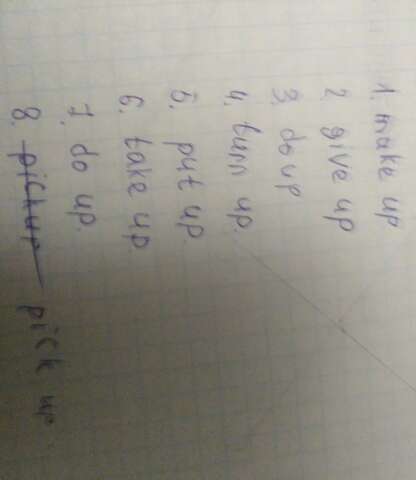 1. make up
2. give up
3. do up
4. turn up.
5. put up.
6. take up.
7. do up.
8. pick up pick up.